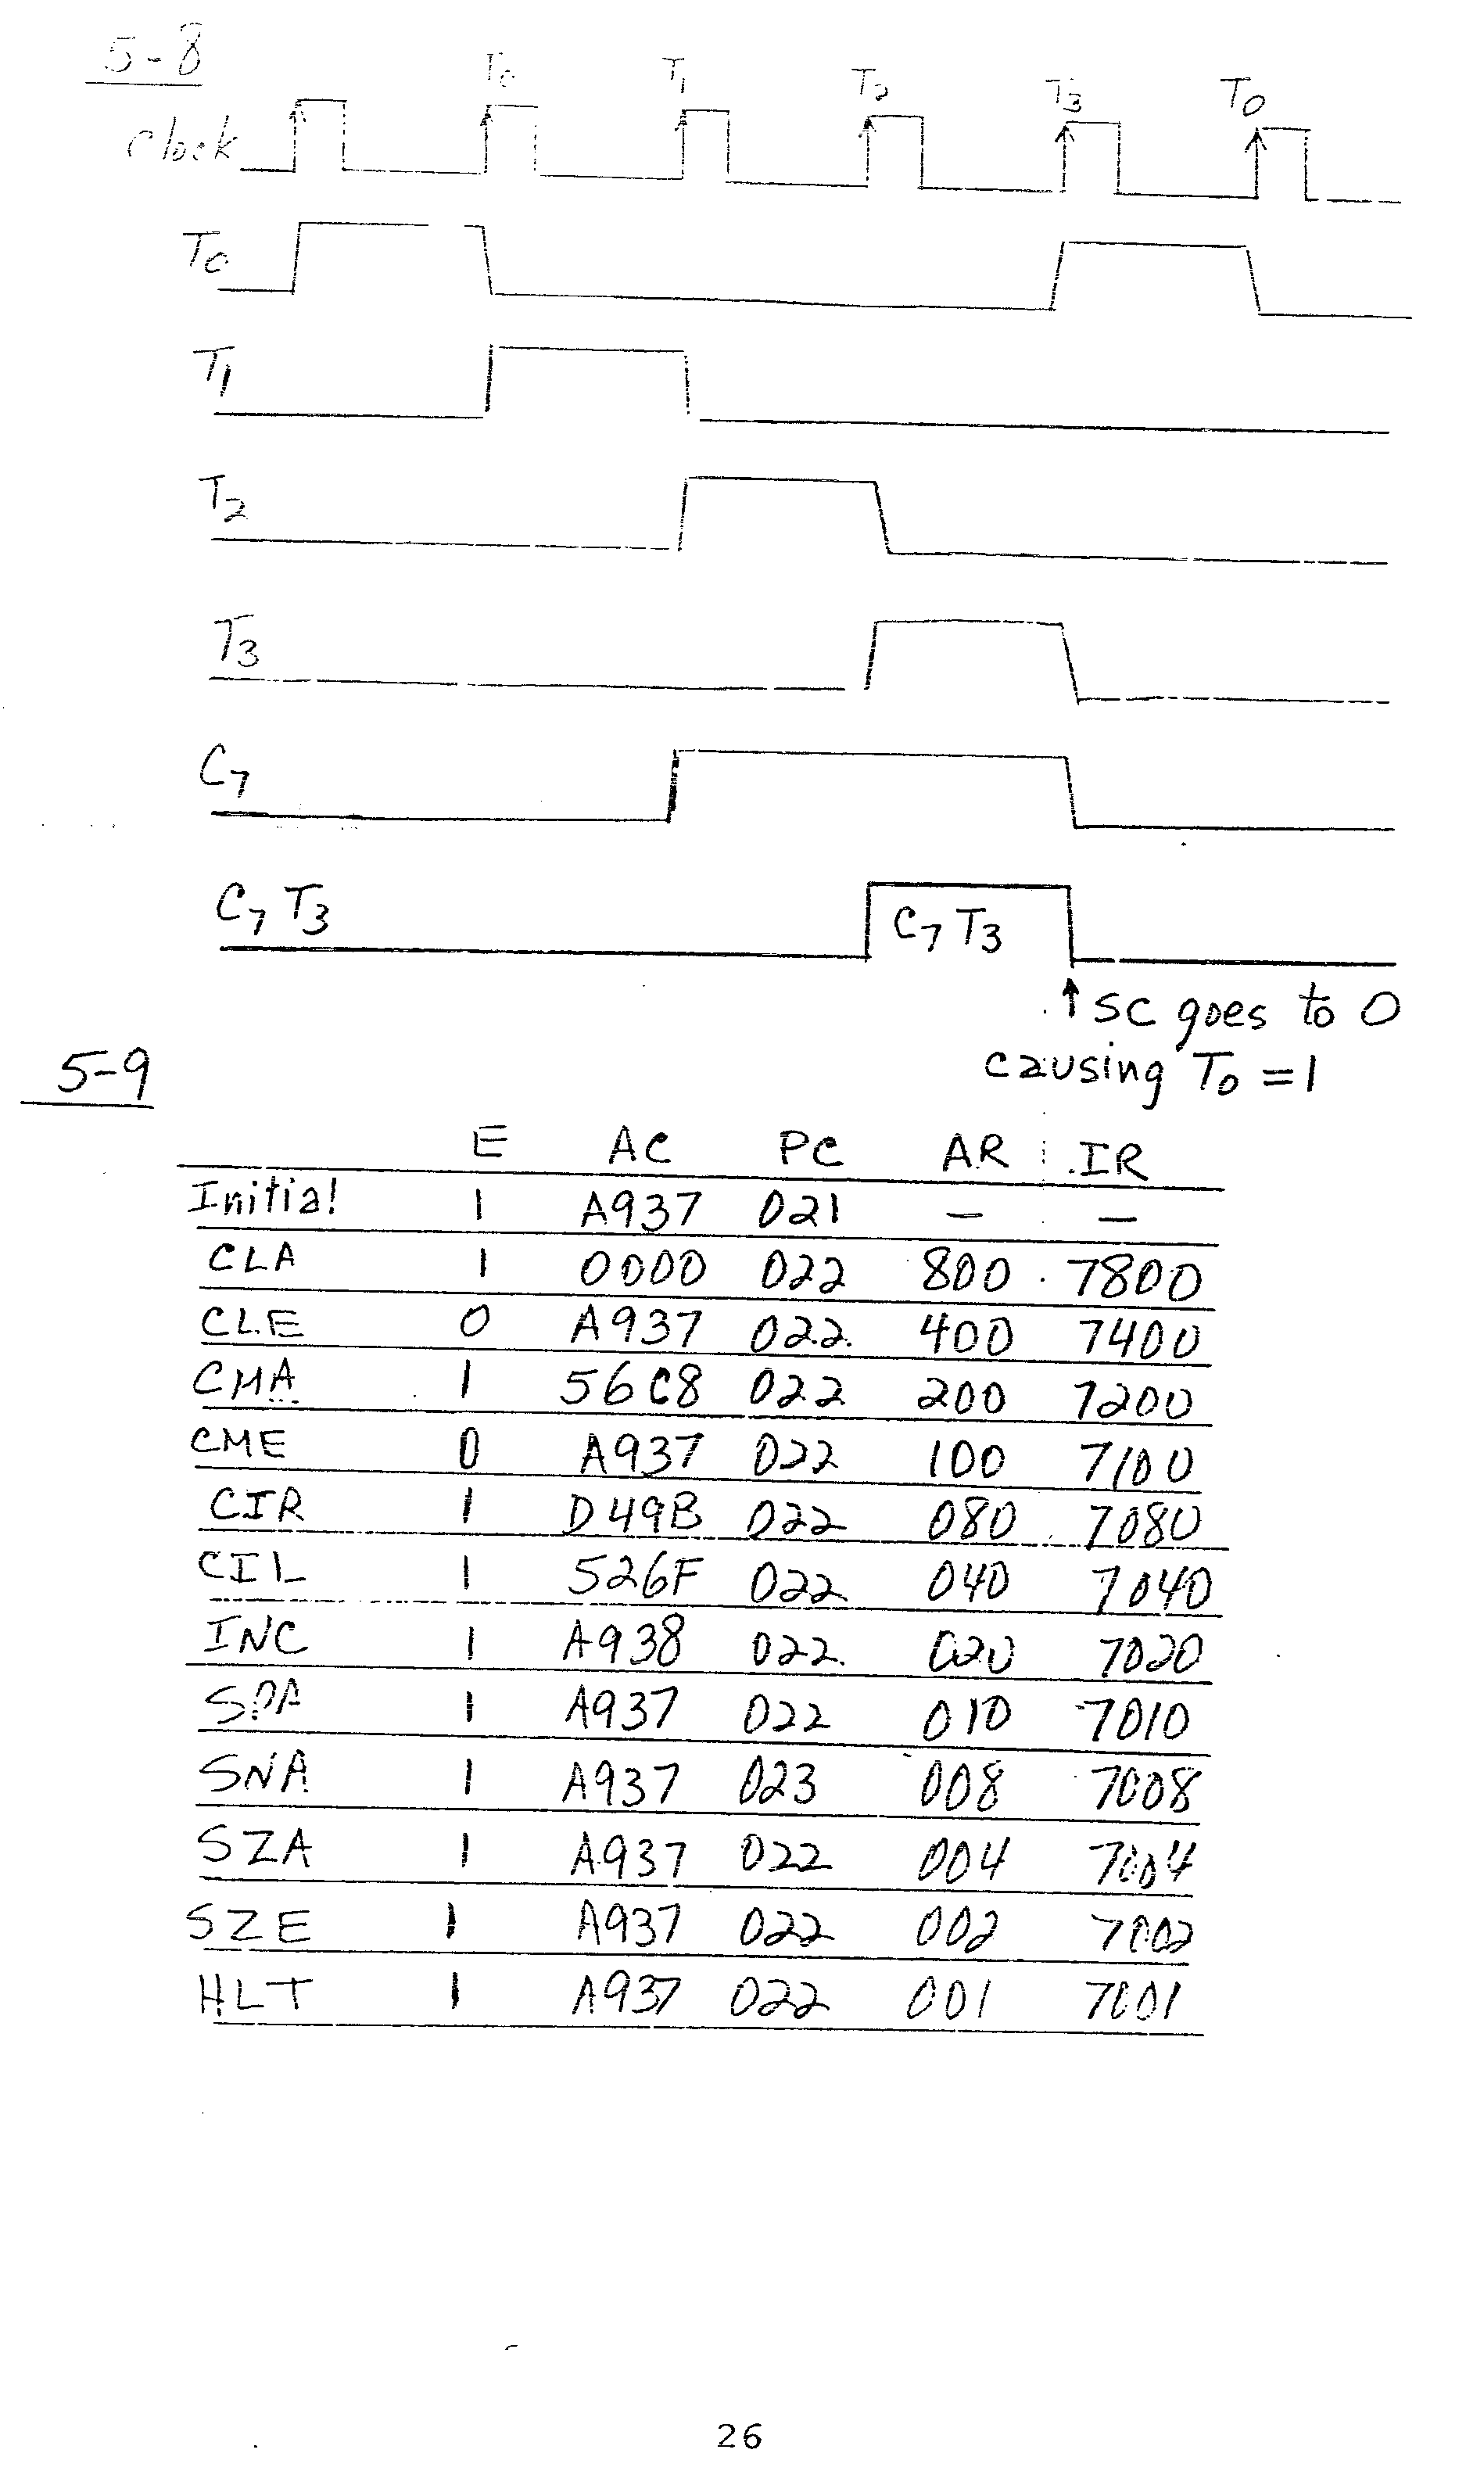 5-8
T0 T1 T2 T3 T0
Clock
T0
T1
T2
T3
C7
C7 T3 C7 T3
↑ SC goes to 0
causing T0 = 1
5-9
E AC PC AR IR
Initial 1 A937 021 – –
CLA 1 0000 022 800 7800
CLE 0 A937 022 400 7400
CMA 1 56C8 022 200 7200
CME 0 A937 022 100 7100
CIR 1 D49B 022 080 7080
CIL 1 526F 022 040 7040
INC 1 A938 022 020 7020
SPA 1 A937 022 010 7010
SNA 1 A937 023 008 7008
SZA 1 A937 022 004 7004
SZE 1 A937 022 002 7002
HLT 1 A937 022 001 7001
26